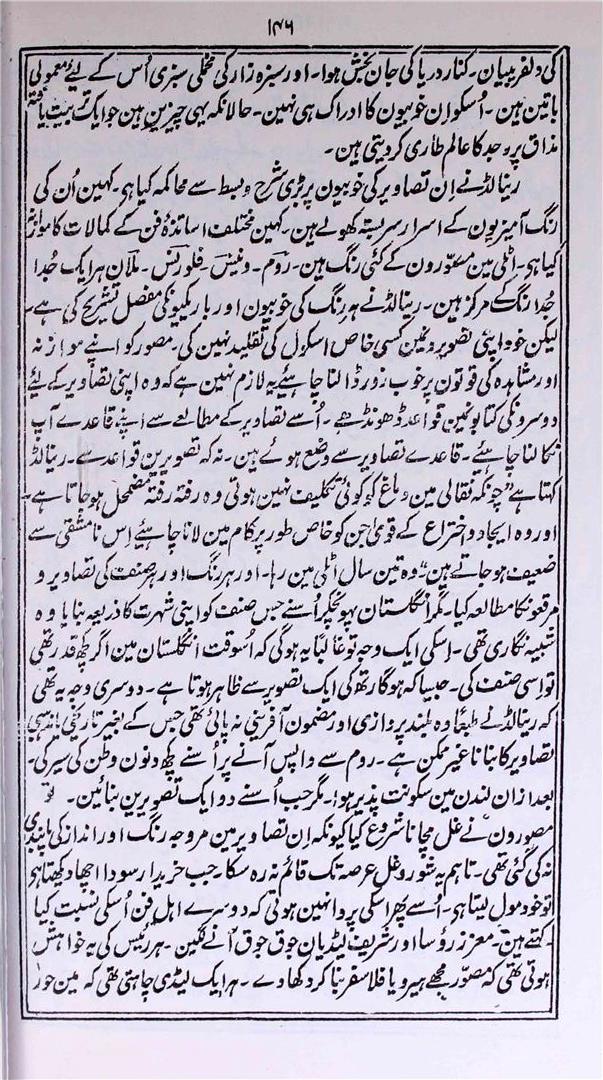 ۱۴۶
کی دلفریبیان۔ کنار دریا کی جان بخش ہوا۔ اور سبزہ زار کی مخملی سبزی اُس کے لیٔے معمولی
باتین ہین۔ اُسکو اِن خوبیون کا ادراک ہی نہین۔ حالانکہ یہی چیزین ہین جو ایک تربیت یافتہ
مذاق پر وجد کا عالم طاری کر دیتی ہین۔
رینالڈ نے اِن تصاویر کی خوبیون پر بڑی شرح و بسط سے محاکمہ کیا ہی۔ کہین اُن کی
رنگ آمیزیون کے اسرار سربستہ کھولے ہین۔ کہین مختلف اساتذۂ فن کے کمالات کا موازنہ
کیا ہی۔ اٹلی مین مصّورون کے کئی رنگ ہین۔ روم۔ ونیس۔ فلورنس۔ ملان ہر ایک جُدا
جُدا رنگ کے مرکز ہین۔ رینالڈ نے ہر رنگ کی خوبیون اور باریکیونکی مفصل تشریح کی ہے۔
لیکن خود اپنی تصویرونمین کسی خاص اسکول کی تقلید نہین کی۔ مصور کو اپنے موازنہ
اور مشاہدہ کی قوتون پر خوب زور ڈالنا چاہئے یہ لازم نہین ہے کہ وہ اپنی تصاویر کے لئے
دوسرونکی کتابونمین قواعد ڈھونڈھے۔ اُسے تصاویر کے مطالعے سے اپنے قاعدے آپ
نکالنا چاہئے۔ قاعدے تصاویر سے وضع ہوئے ہین۔ نہ کہ تصویرین قواعد سے۔ رینالڈ
کہتا ہے ”چونکہ نقالی مین دماغ کو کوئی تکلیف نہین ہوتی وہ رفتہ رفتہ مضمحل ہو جاتا ہے۔
اور وہ ایجاد و اختراع کے قویٰ جن کو خاص طور پر کام مین لانا چاہئیے اِس نا مشقی سے
ضعیف ہو جاتے ہین“ وہ تین سال اٹلی مین رہا۔ اور ہر رنگ اور ہر صنف کی تصاویر و
مرقعونکا مطالعہ کیا۔ مگر انگلستان پہونچکر اُسنے جس صنف کو اپنی شہرت کا ذریعہ بنایا وہ
شبیہ نگاری تھی۔ اِسکی ایک وجہ تو غالبًا یہ ہوگی کہ اُسوقت انگلستان مین اگر کچھ قدر تھی
تو اِسی صنف کی۔ جیسا کہ ہوگارتھ کی ایک تصویر سے ظاہر ہوتا ہے۔ دوسری وجہ یہ تھی
کہ رینالڈ نے طبعًا وہ بلند پروازی اور مضمون آفرینی نہ پائی تھی جس کے بغیر تاریخی یا مذہبی
تصاویر کا بنانا غیر ممکن ہے۔ روم سے واپس آنے پر اُسنے کچھ دنون وطن کی سیر کی۔
بعد ازان لندن مین سکونت پذیر ہوا۔ مگر جب اُسنے دو ایک تصویرین بنائین۔ تو
مصورون نے غل مچانا شروع کیا کیونکہ اِن تصاویر مین مروجہ رنگ اور انداز کی پابندی
نہ کی گئی تھی۔ تاہم یہ شور و غل عرصہ تک قائم نہ رہ سکا۔ جب خریدار سودا اچھا دیکھتا ہی
تو خود مول لیتا ہی۔ اُسے پھر اسکی پروا نہین ہوتی کہ دوسرے اہل فن اُسکی نسبت کیا
کہتے ہین۔ معزز رؤسا اور شریف لیڈیان جوق جوق آنے لگین۔ ہر رئیس کی یہ خواہش
ہوتی تھی کہ مصّور مجھے ہیرو یا فلاسفر بنا کر دکھادے۔ ہر ایک لیڈی چاہتی تھی کہ مین حور